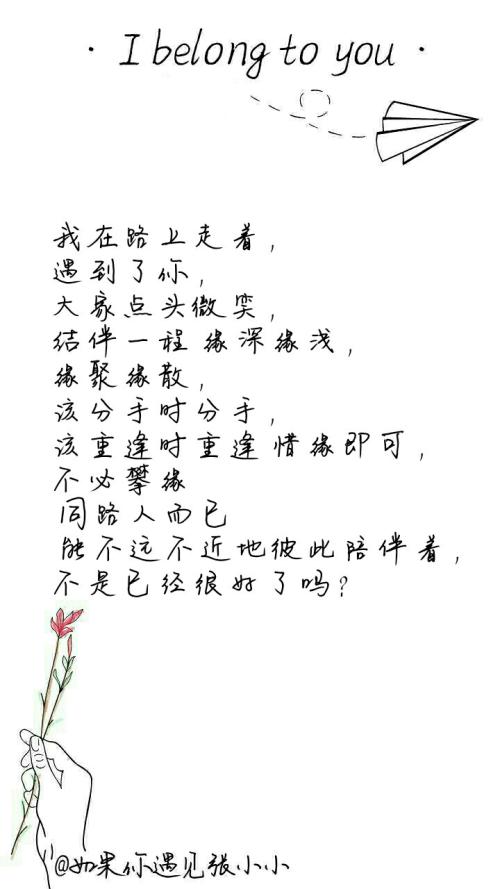 · I belong to you ·
我在路上走着,
遇到了你,
大家点头微笑,
结伴一程 缘深缘浅,
缘聚缘散,
该分手时分手,
该重逢时重逢 惜缘即可,
不必攀缘
同路人而已
能不远不近地彼此陪伴着,
不是已经很好了吗?
@如果你遇见张小小